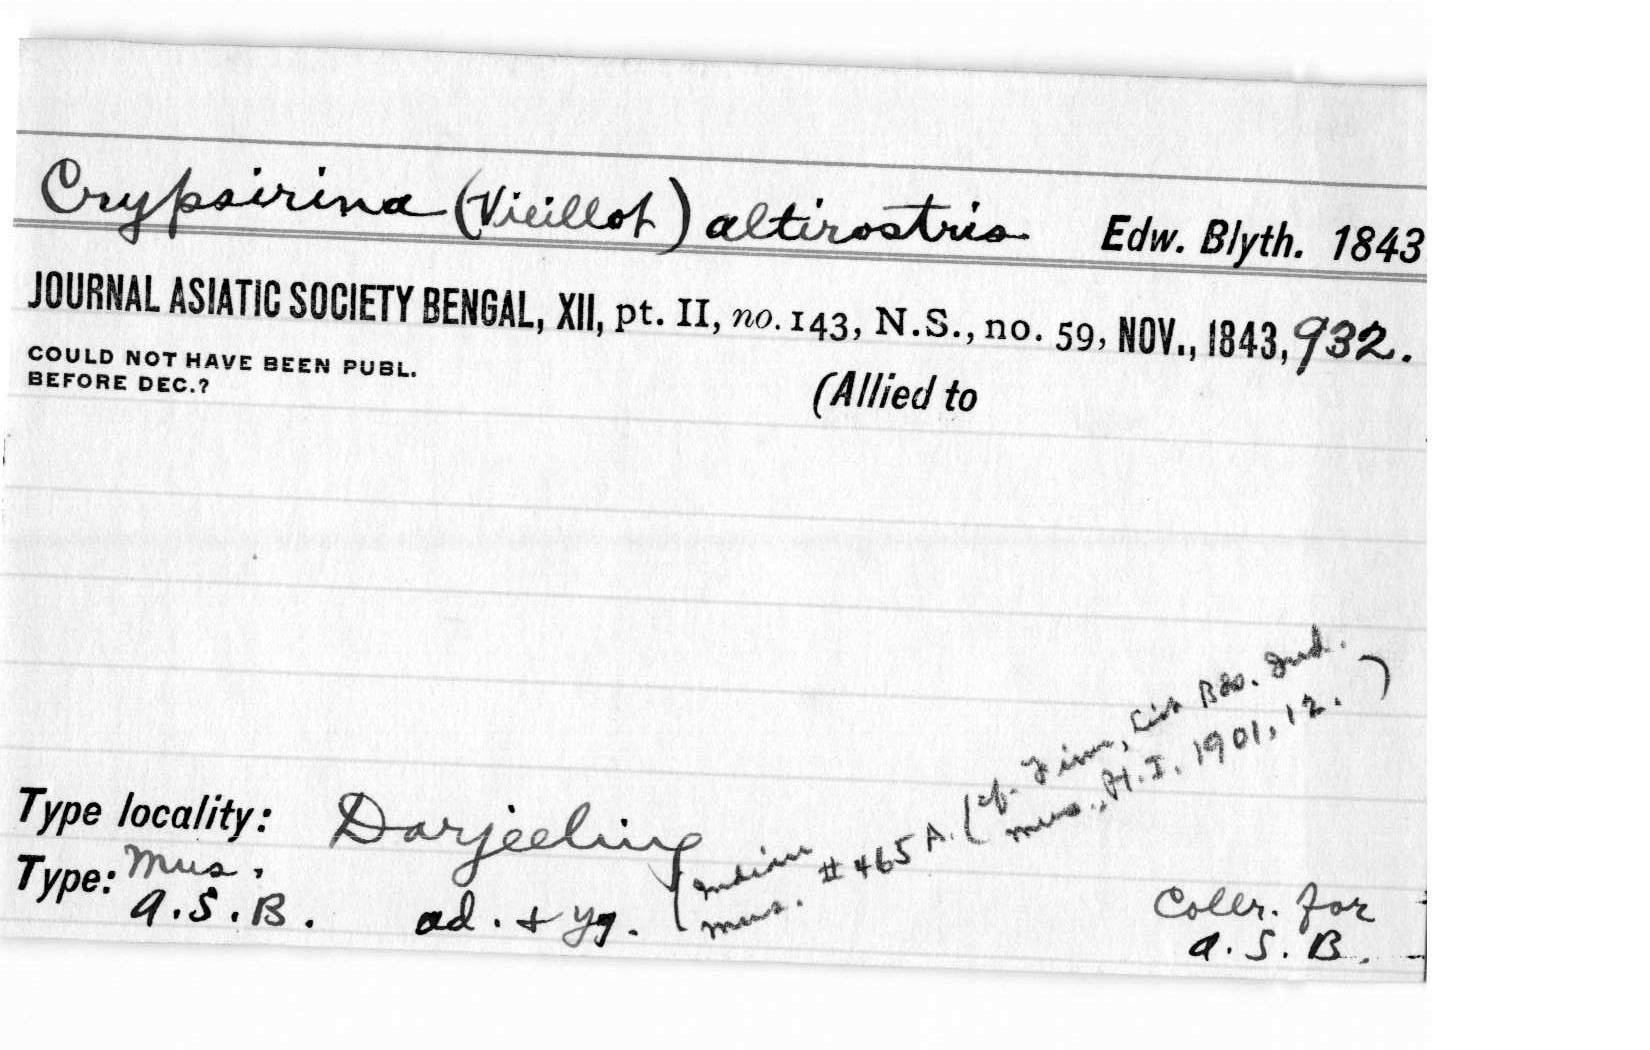 Crypsirina (Vieillot) altirostris Edw. Blyth. 1843
JOURNAL ASIATIC SOCIETY BENGAL, XII, pt. II, no. 143, N.S., no. 59, NOV., 1843, 932.
COULD NOT HAVE BEEN PUBL.
BEFORE DEC.?
(Allied to
Type locality: Darjeeling
Type: Mus.
A.S.B. ad. + yg.
(Indian
Mus. # 465 A. (cf. Finn, List Bds. Ind.
Mus., Pt. I, 1901, 12.)
Collr. for
A.S.B.